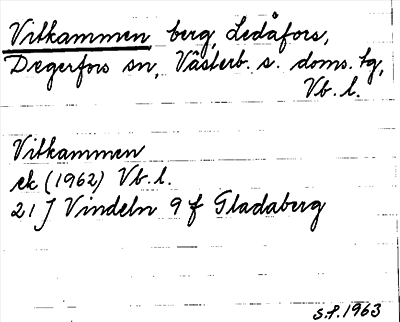 Vitkammen berg, Ledåfors,
Degerfors sn, Västerb. s. doms. tg,
Vb. l.
Vitkammen
ek (1962) Vb. l.
21 J Vindeln 9 f Gladaberg
S.f. 1963